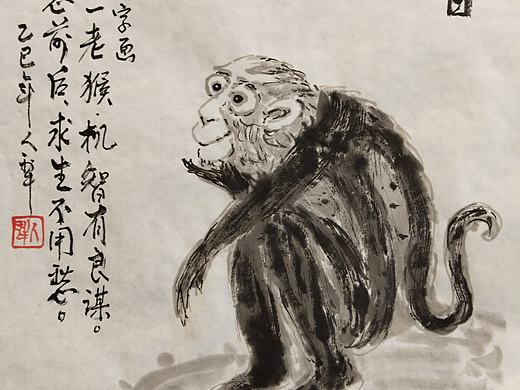 字画
一老猴，机智有良谋。
前后，求生不用愁。
乙巳年人犀